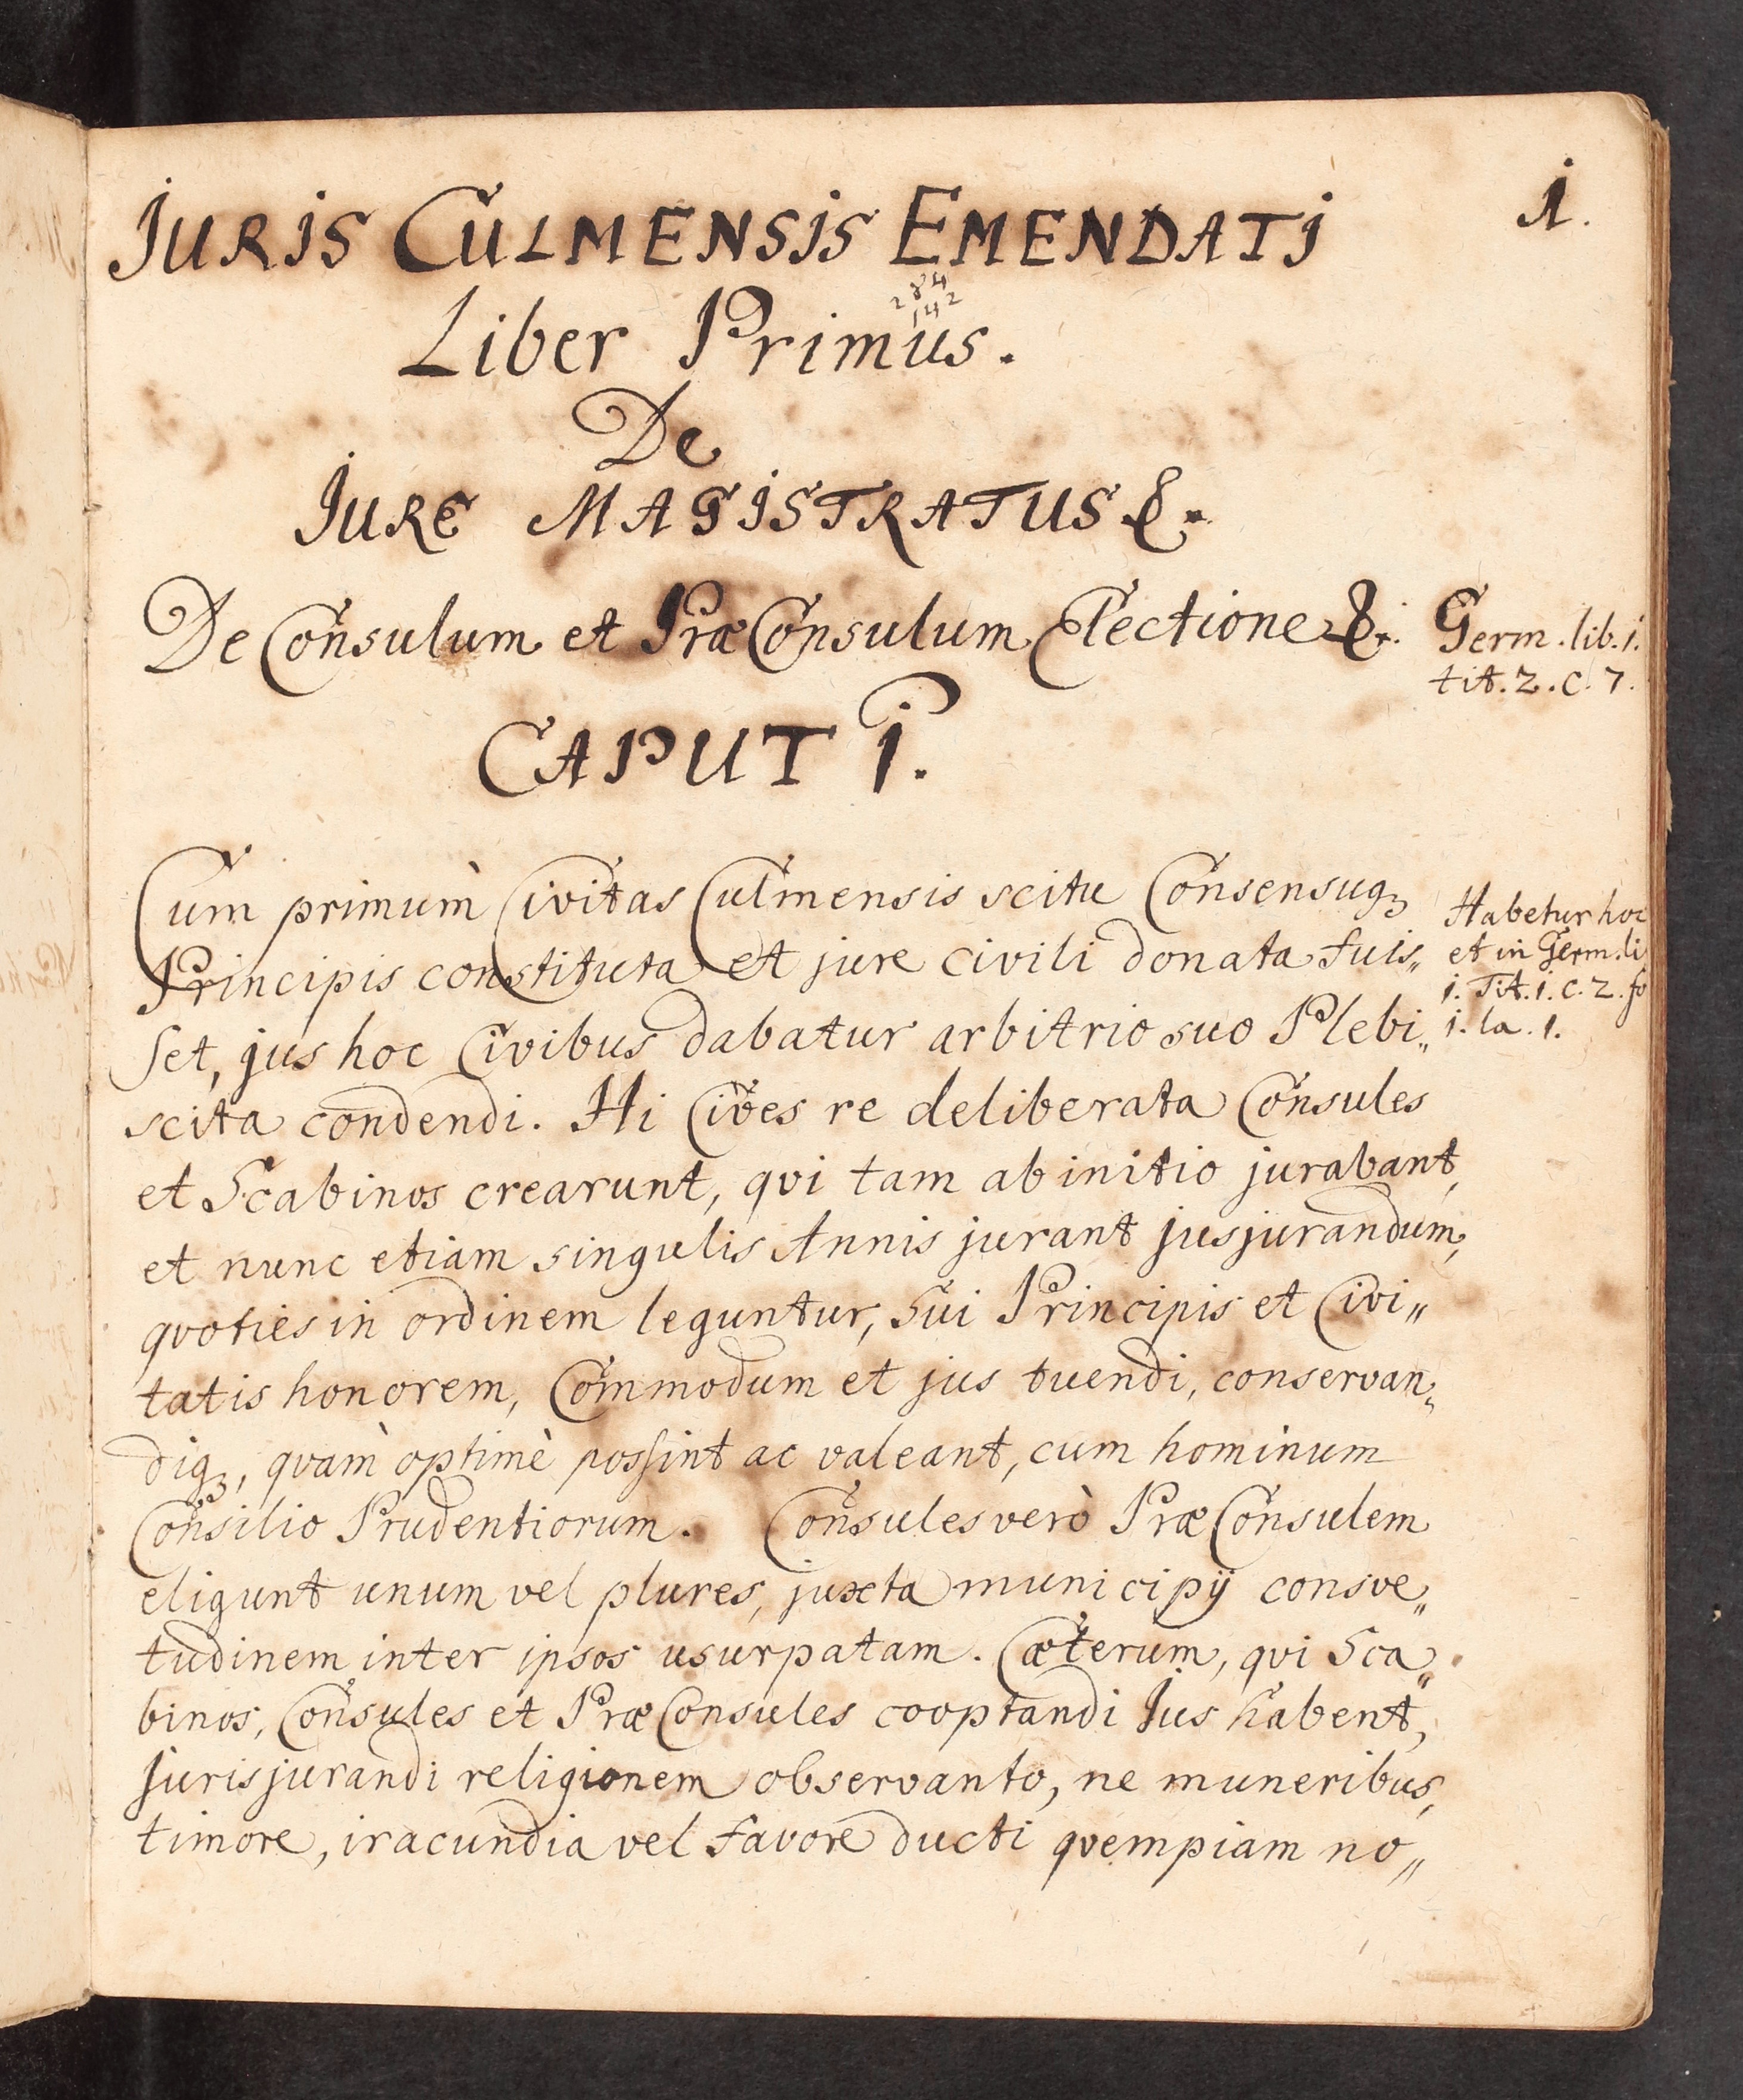 1.
JURIS CULMENSIS EMENDATI
284
142
Liber Primus.
De
JURE MAGISTRATUS &.
De Consulum et PræConsulum Electione &.
Germ. lib. 1.
tit. 2. c. 7.
CAPUT I.
Cum primùm Civitas Culmensis scitu Consensuqꝫ
Principis constituta et jure civili donata fuis„
set, jus hoc Civibus dabatur arbitrio suo Plebi„
scita condendi. Hi Cives re deliberata Consules
et Scabinos crearunt, qvi tam ab initio jurabant,
et nunc etiam singulis Annis jurant jusjurandum,
qvoties in ordinem leguntur, Sui Principis et Civi„
tatis honorem, Commodum et jus tuendi, conservan„
diqꝫ, qvam̀ optimè possint ac valeant, cum hominum
Consilio Prudentiorum. Consules verò PræConsulem
eligunt unum vel plures, juxta municipij consve„
tudinem inter ipsos usurpatam. Cæterum, qvi Sca„
binos, Consules et PræConsules cooptandi Jus habent,
Jurisjurandi religionem observanto, ne muneribus,
timore, iracundia vel favore ducti qvempiam no„
Habetur hoc
et in Germ. li
1. Tit. 1. c. 2. fo
1. la. 1.